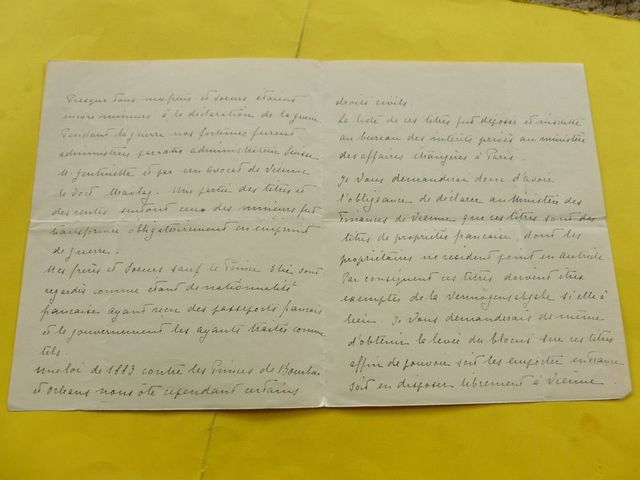 Presque tous mes frères et soeurs étaient
encore mineurs à la déclaration de la guerre
Pendant la guerre nos fortunes furent
administrées par un administrateur
M. et par un avocat de Vienne
le Doct. Une partie des titres et
des rentes surtout ceux des mineurs fut
transformée obligatoirement en emprunt
de guerre.
Mes frères et soeurs sauf le Prince Elie sont
regardés comme étant de nationalité
française ayant reçu des passeports français
et le gouvernement les ayant traités comme
tels.
une loi de 1883 contre les Princes de Bourbon
et Orléans nous ôte cependant certains
droits civils.
La liste de ces titres fut déposée et
au bureau des intérêts privés au ministère
des affaires étrangères à Paris
Je vous demanderai donc d'avoir
l'obligeance de déclarer au Ministère des
Finances de Vienne que ces titres sont des
titres de propriété française, dont les
propriétaires ne resident point en autriche.
Par conséquent ces titres doivent être
exemptés de la Vermögensabgabe si elle a
lieu. Je vous demanderais de même
d'obtenir la levée du blocus sur ces titres
affin de pouvoir soit les emporter en france
soit en disposer librement à Vienne.